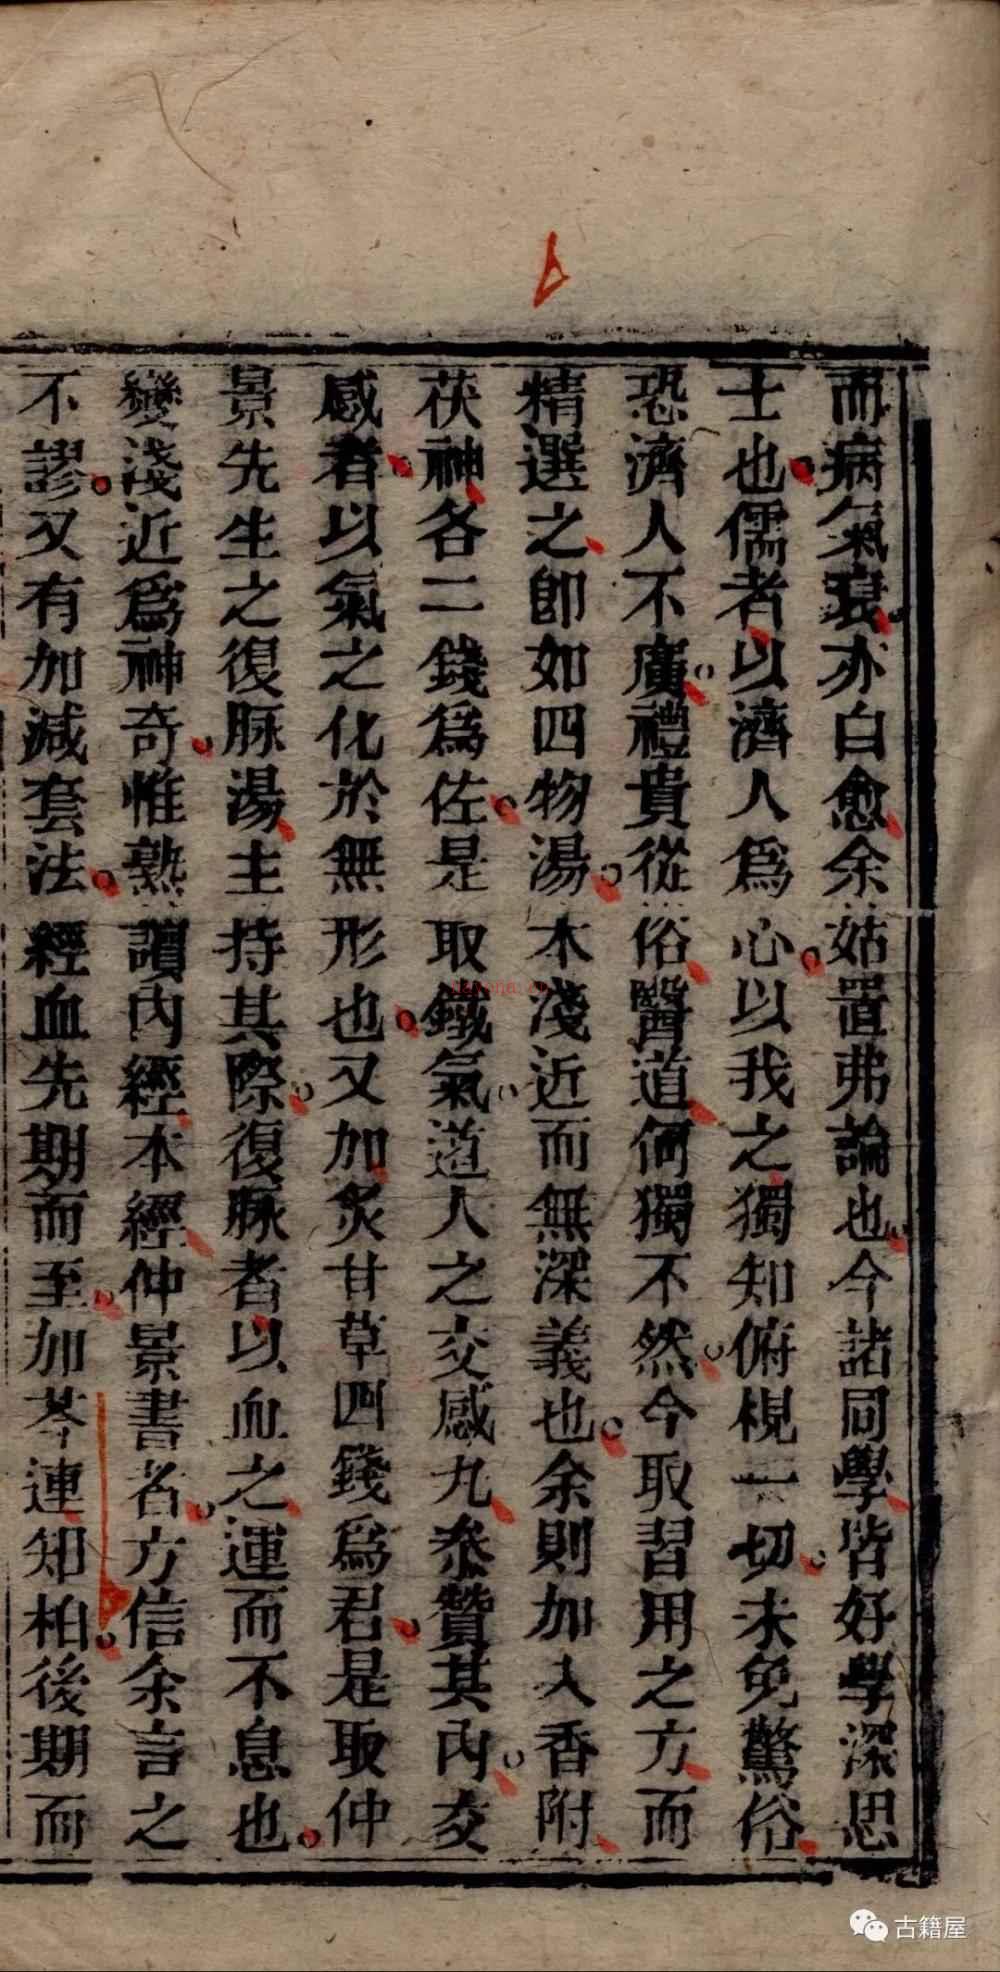 而病氣衰亦白愈余姑置弗論也今諸同學皆好學深思
士也儒者以濟人爲心以我之獨知俯視一切未免驚俗
恐濟人不廣禮貴從俗醫道何獨不然今取習用之方而
精選之卽如四物湯本淺近而無深義也余則加入香附
茯神各二錢爲佐是取鐵氣道人之交感丸叅贊其內交
感者以氣之化於無形也又加炙甘草四錢爲君是取仲
景先生之復脈湯主持其際復脈者以血之運而不息也
變淺近爲神奇惟熟讀內經本經仲景書者方信余言之
不謬又有加減套法經血先期而至加芩連知柏後期而
nayona.cn
古籍屋